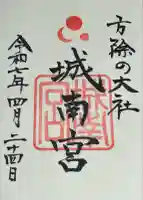 方除の大社
城南宮
令和七年四月二十四日